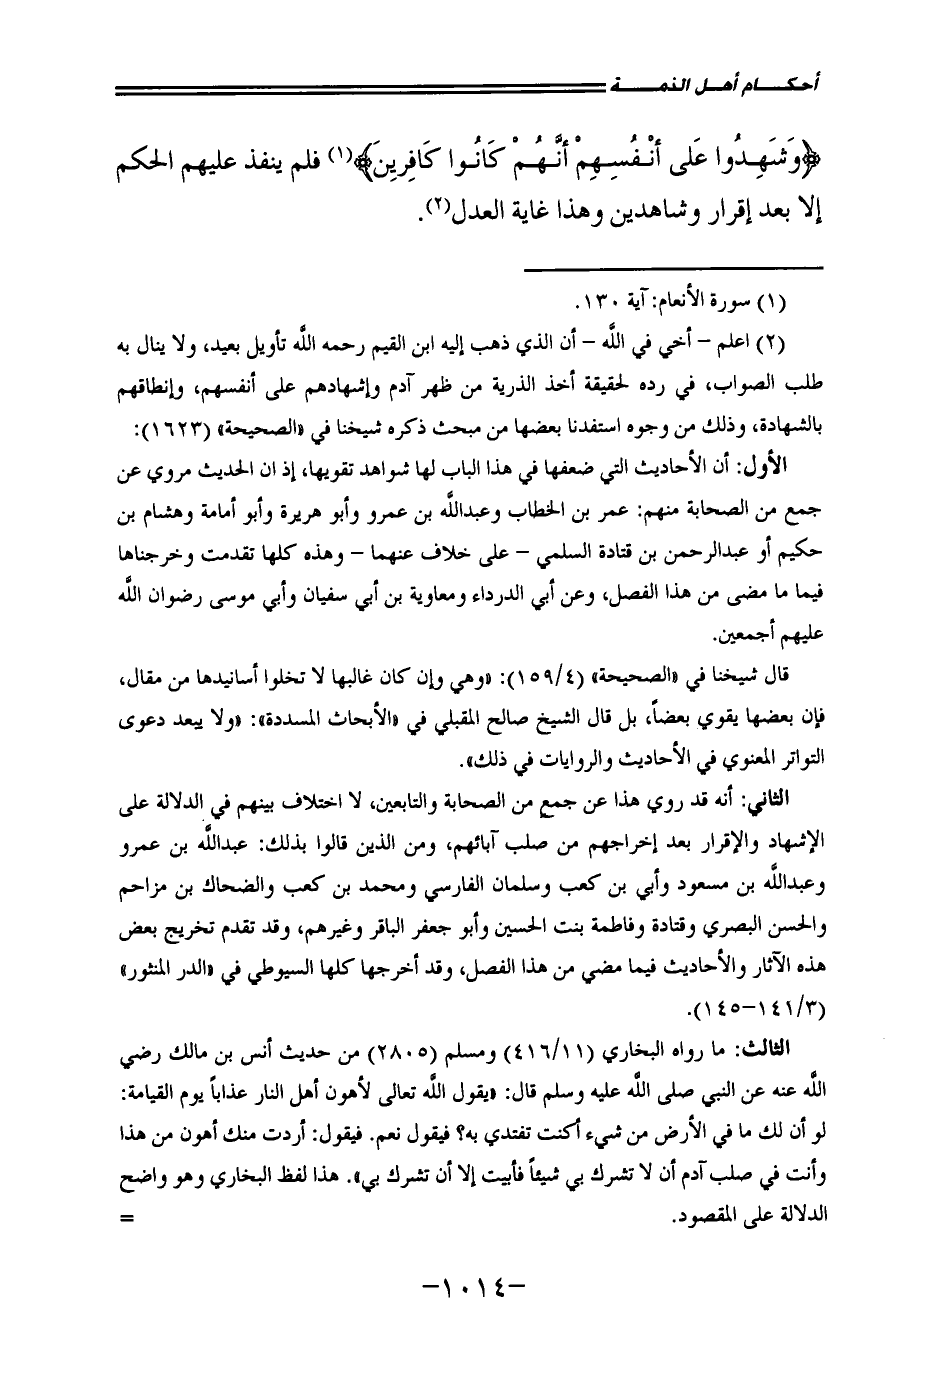 أحكـــام أهـل الذمـــة
﴿وَشَهِدُوا عَلَى أَنْفُسِهِمْ أَنَّهُمْ كَانُوا كَافِرِينَ﴾(١) فلم ينفذ عليهم الحكم
إلا بعد إقرار وشاهدين وهذا غاية العدل(٢).
(١) سورة الأنعام: آية ١٣٠.
(٢) اعلم – أخي في اللَّه – أن الذي ذهب إليه ابن القيم رحمه اللَّه تأويل بعيد، ولا ينال به
طلب الصواب، في رده لحقيقة أخذ الذرية من ظهر آدم وإشهادهم على أنفسهم، وإنطاقهم
بالشهادة، وذلك من وجوه استفدنا بعضها من مبحث ذكره شيخنا في «الصحيحة» (١٦٢٣):
الأول: أن الأحاديث التي ضعفها في هذا الباب لها شواهد تقويها، إذ ان الحديث مروي عن
جمع من الصحابة منهم: عمر بن الخطاب وعبداللَّه بن عمرو وأبو هريرة وأبو أمامة وهشام بن
حكيم أو عبدالرحمن بن قتادة السلمي – على خلاف عنهما – وهذه كلها تقدمت وخرجناها
فيما ما مضى من هذا الفصل، وعن أبي الدرداء ومعاوية بن أبي سفيان وأبي موسى رضوان اللَّه
عليهم أجمعين.
قال شيخنا في «الصحيحة» (١٥٩/٤): «وهي وإن كان غالبها لا تخلوا أسانيدها من مقال،
فإن بعضها يقوي بعضاً، بل قال الشيخ صالح المقبلي في «الأبحاث المسددة»: «ولا يبعد دعوى
التواتر المعنوي في الأحاديث والروايات في ذلك».
الثاني: أنه قد روي هذا عن جمع من الصحابة والتابعين، لا اختلاف بينهم في الدلالة على
الإشهاد والإقرار بعد إخراجهم من صلب آبائهم، ومن الذين قالوا بذلك: عبداللَّه بن عمرو
وعبداللَّه بن مسعود وأبي بن كعب وسلمان الفارسي ومحمد بن كعب والضحاك بن مزاحم
والحسن البصري وقتادة وفاطمة بنت الحسين وأبو جعفر الباقر وغيرهم، وقد تقدم تخريج بعض
هذه الآثار والأحاديث فيما مضي من هذا الفصل، وقد أخرجها كلها السيوطي في «الدر المنثور»
(١٤١/٣–١٤٥).
الثالث: ما رواه البخاري (٤١٦/١١) ومسلم (٢٨٠٥) من حديث أنس بن مالك رضي
اللَّه عنه عن النبي صلى اللَّه عليه وسلم قال: «يقول اللَّه تعالى لأهون أهل النار عذاباً يوم القيامة:
لو أن لك ما في الأرض من شيء أكنت تفتدي به؟ فيقول نعم. فيقول: أردت منك أهون من هذا
وأنت في صلب آدم أن لا تشرك بي شيئاً فأبيت إلا أن تشرك بي». هذا لفظ البخاري وهو واضح
الدلالة على المقصود. =
–١٠١٤–